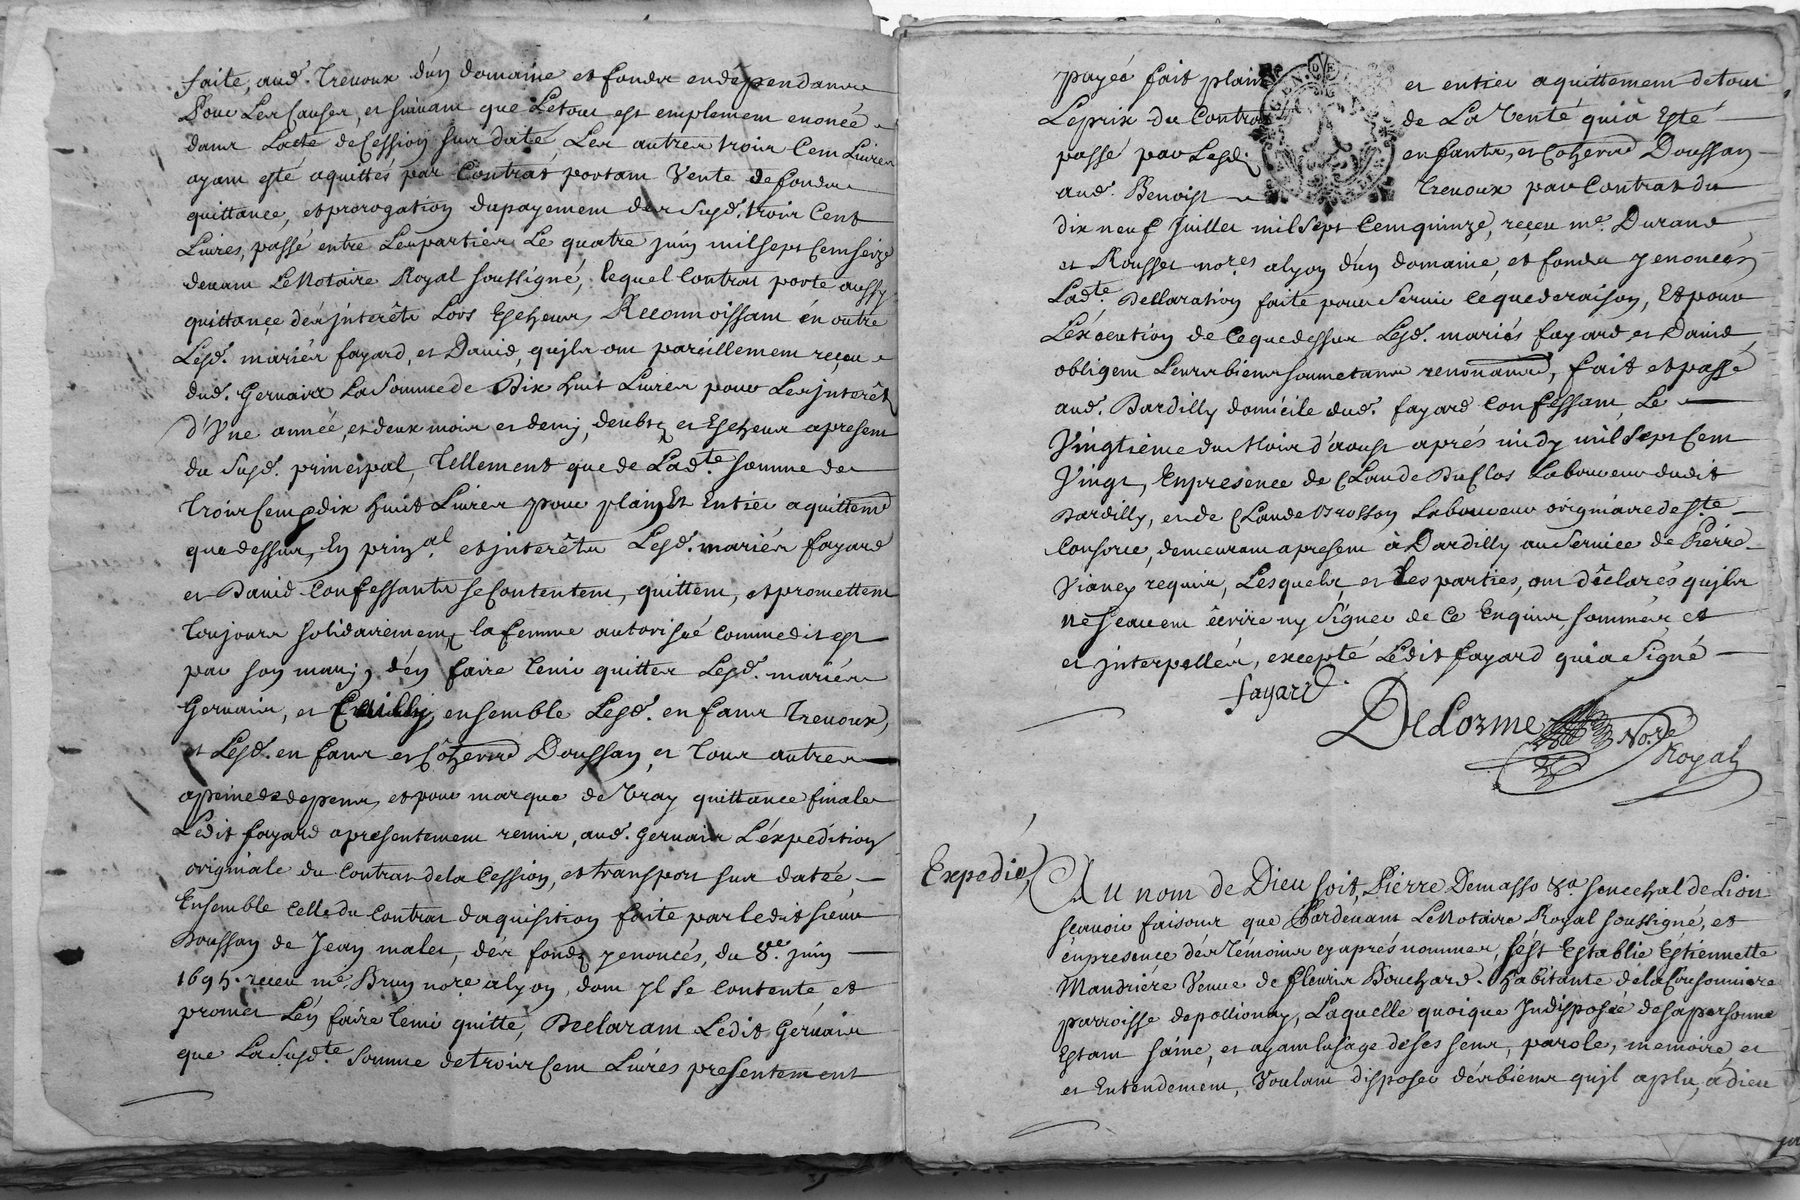 faite, aud. Trenoux d'un domaine et fonds en dépendans
Pour Les Causes, et suivant que Letout est emplement enoncé
dans Lacte de Cession sur daté, Les autres trois Cem Livres
ayam esté aquittés par Contrat portam Vente de fonds
quittance, et prorogation dupayement des susd. trois Cent
Livres, passé entre Lesparties Le quatre juin mil sept Cem seize
devam Le Notaire Royal soussigné, lequel Contrat porte aussy
quittance des jnterêts Lors Escheus, Reconnoissam én outre
Lesd. mariés fayard, et David, qujls om pareillemem reçeu
dud. Gervais La Somme de Dix huit Livres pour Les jnterêts
d'Vne année, et deux mois et demy, deubs et Escheus apresem
du susd. principal, Tellement que de Ladte somme de
Trois Cem dix huit Livres pour plain Et Entier aquittemt
que dessus, En prinal et jnterêts Lesd. mariés fayard
et David Confessants se Contentem, quittem, et promettem
Toujours solidairemem, la femme autorisée Comme dit est
par son mary, d'én faire tenir quittes Lesd. mariés
Gervais, et ensemble Lesd. enfans Trenoux,
et Lesd. enfans et Cohers Doussan, et Tous autres
apeine de depens, et pour marque de Vray quittance finale
Ledit fayard apresentemem remis, aud. Gervais L'éxpedition
originale du Contrat de la Cession, et transport sur datée,
Ensemble Celle du Contrat daquisition faite par ledit sieur
Doussan de Jean malet, dés fonds y enoncés, du 8e juin
1695. receu me Brun nore alyon, dom jl se Contente, et
promet L'én faire tenir quitte, Declaram Ledit Gervais
que La Susdte Somme de trois Cem Livres presentement
payée fait plain et entier aquittemem detout
Leprix du Contrat de La Vente quia Esté
passé par Lesd. enfants, et Cohers Doussan
aud. Benoist Trenoux par Contrat du
dix neuf Juillet mil Sept Cem quinze, reçeu me. Durand
et Rousset nores alyon d'un domaine, et fonds y enoncés
Ladte. Declaration faite pour Servir cequederaison, Et pour
L'éxécution de Cequedessus Lesd. mariés fayard et David
obligem Leurs biens soumetans renonants, fait et passé
aud. Dardilly domicile dud. fayard Confessam, Le
Vingtième du Mois d'aoust aprés midy mil Sept Cem
Vingt, En presence de Claude DuClos Laboureur dudit
Dardilly, et de Claude Brosson Laboureur originaire de Ste
Consorce, demeuram apresem à Dardilly au Service de Pierre
Vianey requis, Lesquels, et Les parties, om déclarés qujls
ne sçavem écrire ny Signer de Ce Enquis, sommés et
et jnterpellés, excepté Ledit fayard quia Signé
fayard
DeLorme Nore
Royal
Expedié
Au nom de Dieu soit, Pierre Demasso senechal de Lion
scavoir faisons que Pardevant Le Notaire Royal soussigné, et
én presence des Témoins cy aprés nommés, s'ést Establie Estiennette
Mandriére Veuve de fleuris Bouchard habitante de la Cousonniere
parroisse de pollionay, Laquelle quoique Jndisposée desapersonne
Estam saine, et ayam lusage de ses sens, parole, memoire, et
et Entendemem, Voulam disposer dés biens qujl aplu, a dieu